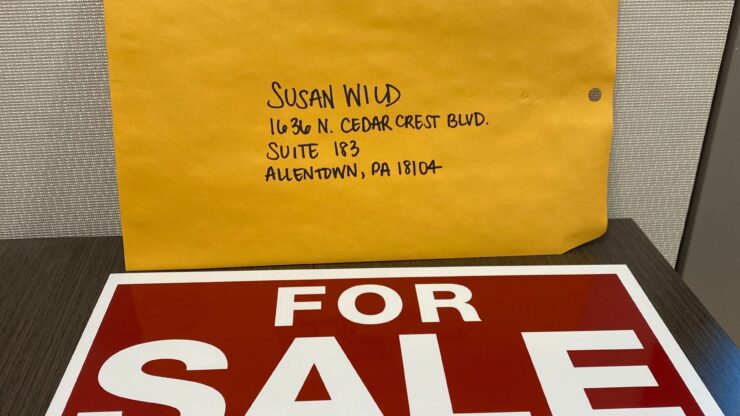 SUSAN WILD
1636 N. CEDAR CREST BLVD.
SUITE 183
ALLENTOWN, PA 18104
FOR
SALE